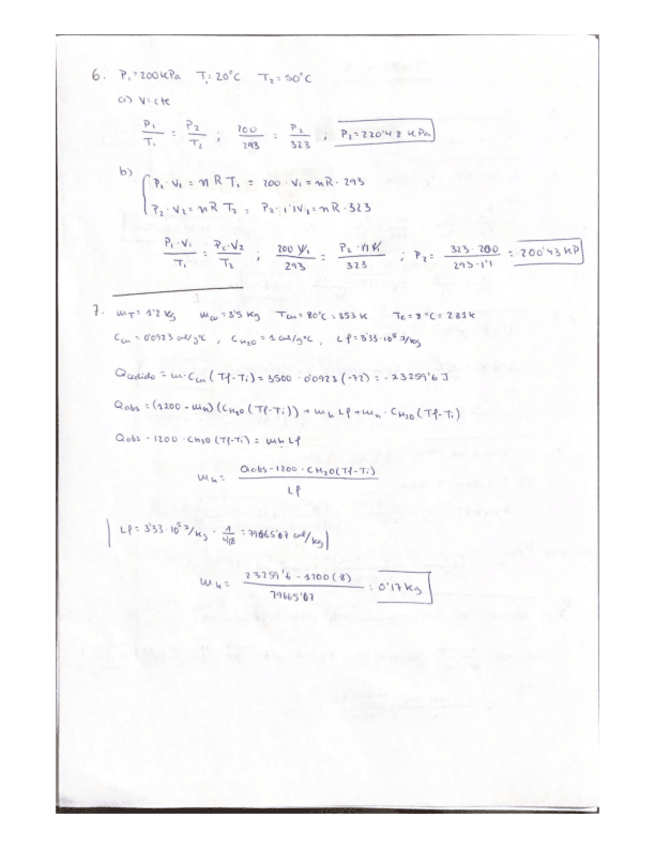 6. P₁=200KPa T₁=20°C T₂=50°C
a) V=cte
P₁/T₁ = P₂/T₂ ; 200/293 = P₂/323 ; P₂=220'48 KPa
b) P₁·V₁ = nRT₁ = 200·V₁=nR·293
P₂·V₂=nRT₂ = P₂·1'1V₁=nR·323
P₁·V₁/T₁ = P₂·V₂/T₂ ; 200 V₁/293 = P₂·1'1 V₁/323 ; P₂= 323·200/293·1'1 = 200'43 KP
7. m_T=1'2 Kg m_cu=3'5 Kg T_cu=80°C=353K T_f=8°C=281K
C_cu=0'0923 cal/g°C , C_H₂O=1 cal/g°C , Lf=3'33·10⁵ J/Kg
Qcedido = m·C_cu (Tf-Ti)=3500·0'0923(-72)=-23259'6 J
Qabs=(1200-m_h)(C_H₂O(Tf-Ti))+m_h Lf+m_h·C_H₂O(Tf-Ti)
Qabs-1200·C_H₂O(Tf-Ti)=m_h Lf
m_h= Qabs-1200·C_H₂O(Tf-Ti)/Lf
|Lf=3'33·10⁵ J/Kg · 1/4,18 =79665'07 cal/Kg|
m_h= 23259'6-1200(8)/79665'07 = 0'17 Kg